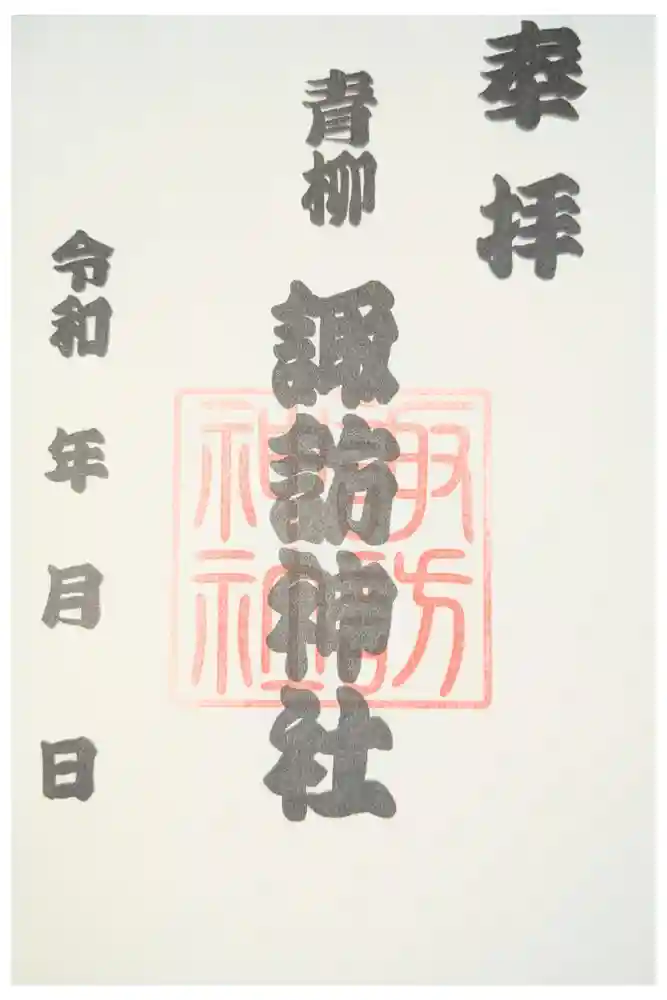 奉拝
青柳
諏訪神社
諏訪神社
令和 年 月 日